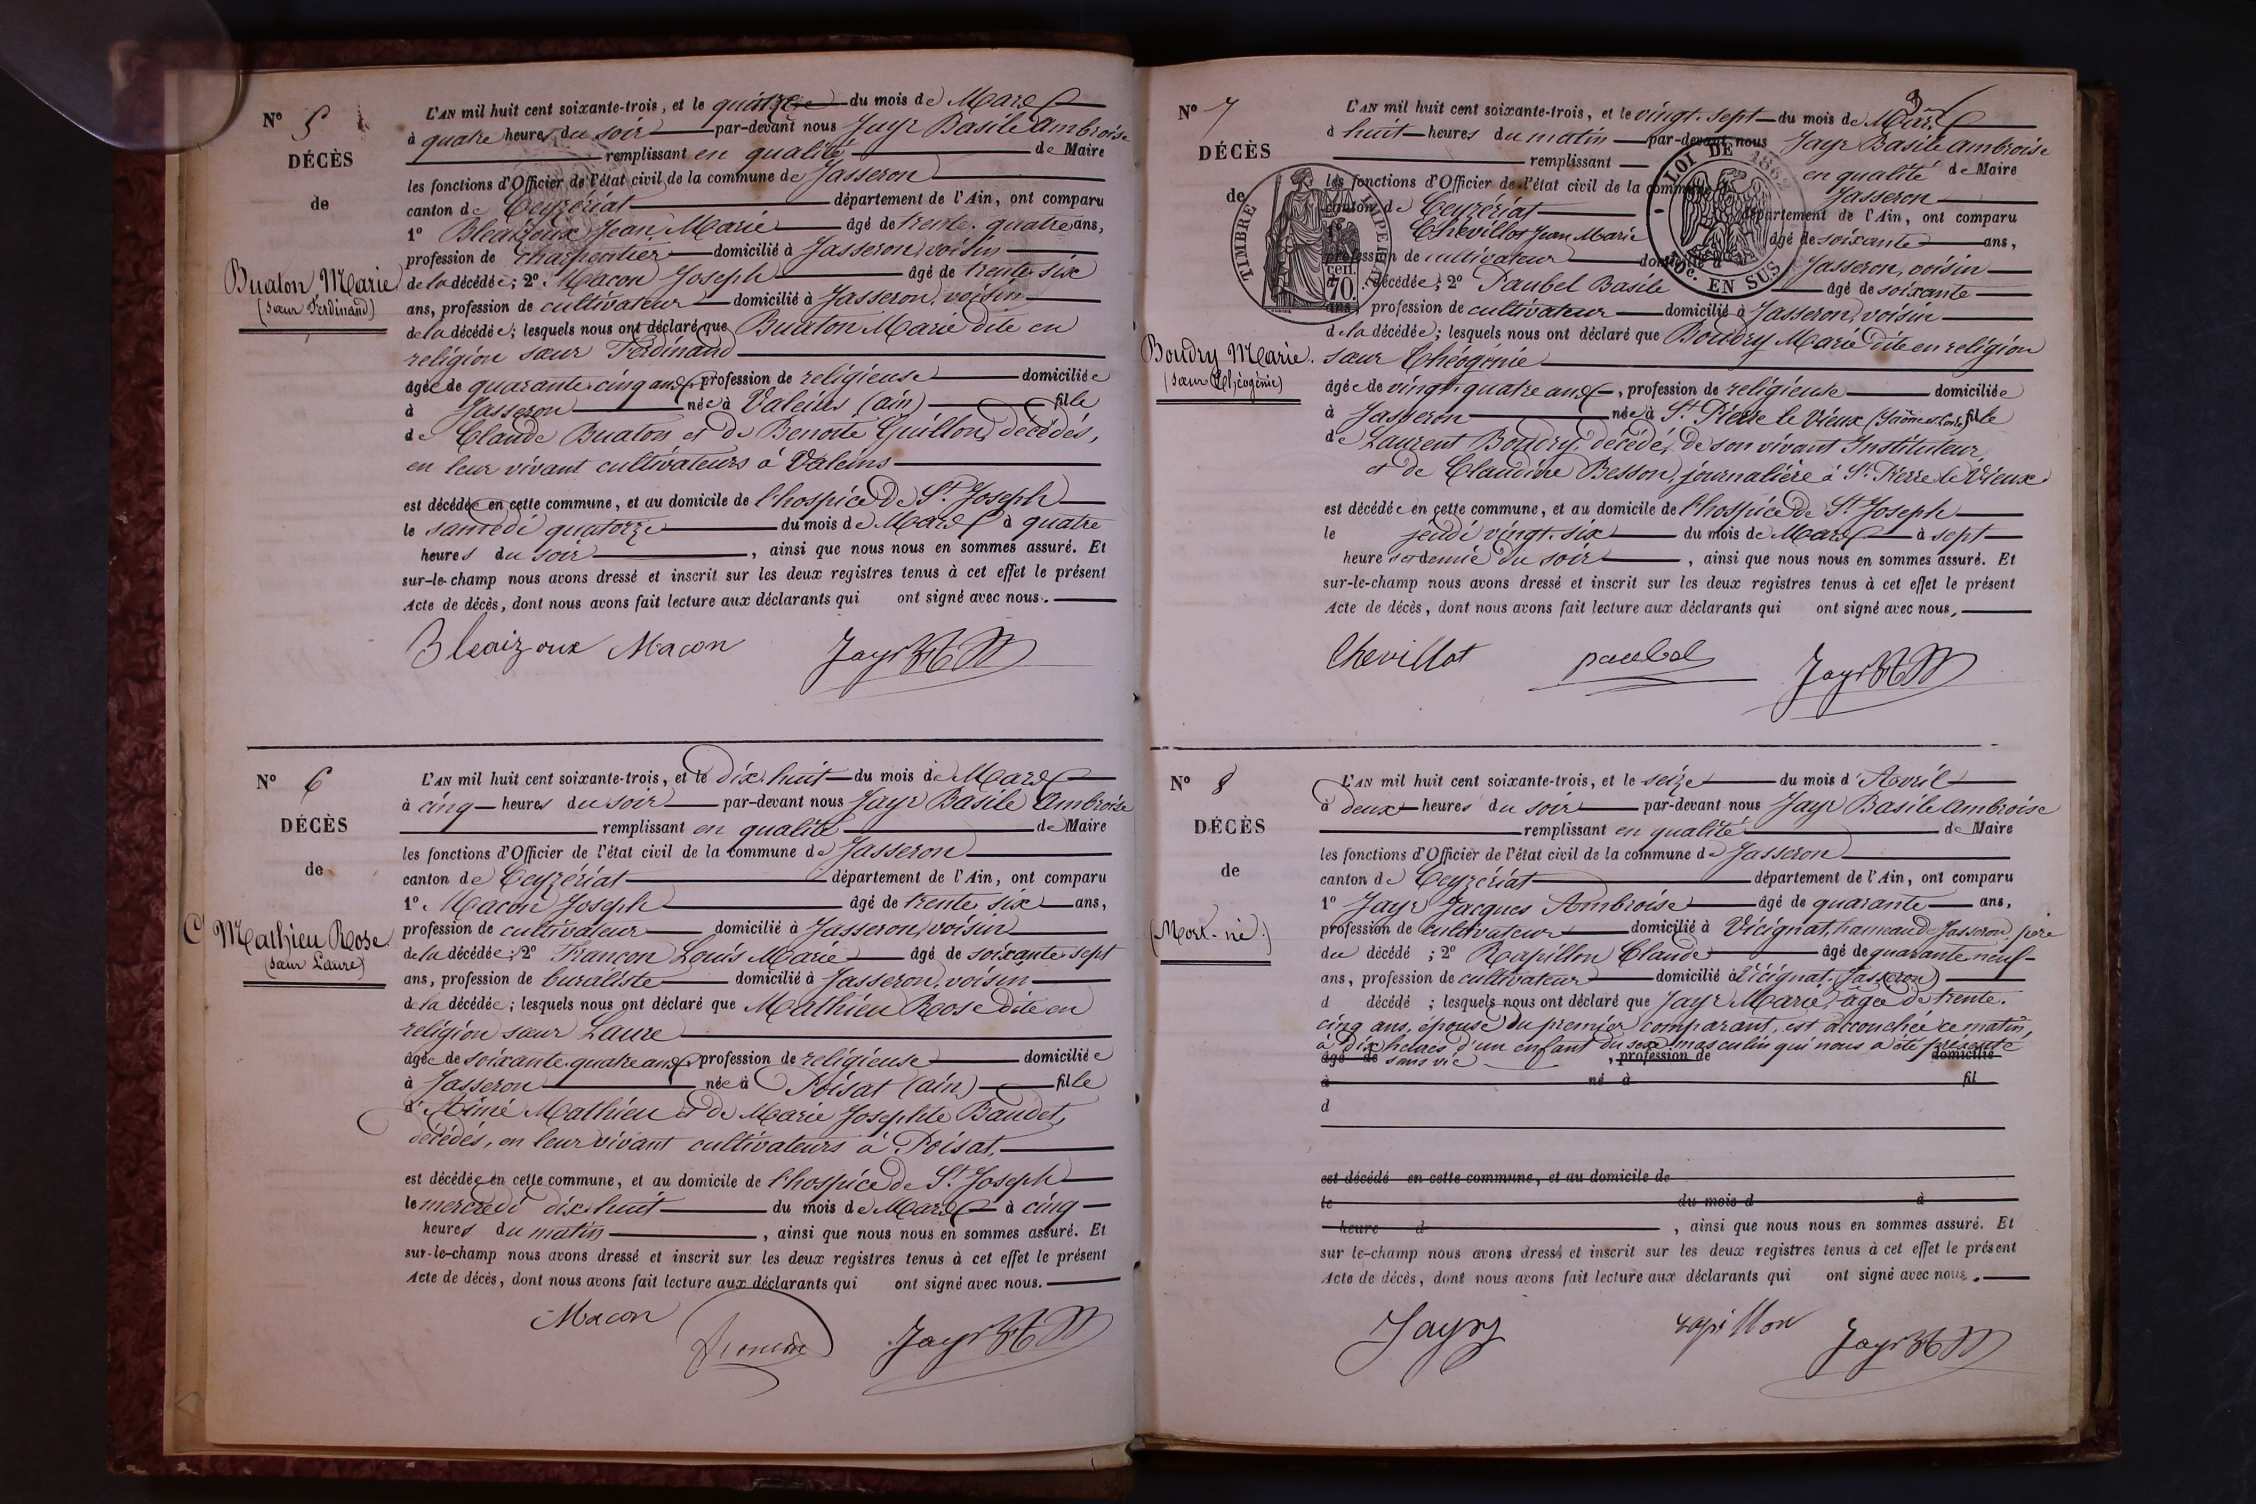 N° 5
DÉCÈS
de
Buaton Marie
(sœur Ferdinand)
L'AN mil huit cent soixante-trois, et le quinze du mois de Mars
à quatre heures du soir par-devant nous Jayr Basile Ambroise
remplissant en qualité de Maire
les fonctions d'Officier de l'état civil de la commune de Jasseron
canton de Ceyzériat département de l'Ain, ont comparu
1° Bleaizoux Jean Marie âgé de trente-quatre ans,
profession de charpentier domicilié à Jasseron, voisin
de la décédée; 2° Macon Joseph âgé de trente six
ans, profession de cultivateur domicilié à Jasseron, voisin
de la décédée; lesquels nous ont déclaré que Buaton Marie dite en
religion sœur Ferdinand
âgée de quarante-cinq ans, profession de religieuse domiciliée
à Jasseron née à Valeins (ain) fille
de Claude Buaton et de Benoite Guillon, décédés,
en leur vivant cultivateurs à Valeins
est décédée en cette commune, et au domicile de l'hospice de St Joseph
le samedi quatorze du mois de Mars à quatre
heures du soir, ainsi que nous nous en sommes assuré. Et
sur-le-champ nous avons dressé et inscrit sur les deux registres tenus à cet effet le présent
Acte de décès, dont nous avons fait lecture aux déclarants qui ont signé avec nous.
Bleaizoux Macon Jayr
N° 6
DÉCÈS
de
Mathieu Rose
(sœur Laure)
L'AN mil huit cent soixante-trois, et le dix-huit du mois de Mars
à cinq heures du soir par-devant nous Jayr Basile Ambroise
remplissant en qualité de Maire
les fonctions d'Officier de l'état civil de la commune de Jasseron
canton de Ceyzériat département de l'Ain, ont comparu
1° Macon Joseph âgé de trente six ans,
profession de cultivateur domicilié à Jasseron, voisin
de la décédée; 2° Francon Louis Marie âgé de soixante-sept
ans, profession de buraliste domicilié à Jasseron, voisin
de la décédée; lesquels nous ont déclaré que Mathieu Rose dite en
religion sœur Laure
âgée de soixante-quatre ans, profession de religieuse domiciliée
à Jasseron née à Poisat (ain) fille
d'Aimé Mathieu et de Marie Josephte Baudet,
décédés, en leur vivant cultivateurs à Poisat,
est décédée en cette commune, et au domicile de l'hospice de St Joseph
le mercredi dix-huit du mois de Mars à cinq
heures du matin, ainsi que nous nous en sommes assuré. Et
sur-le-champ nous avons dressé et inscrit sur les deux registres tenus à cet effet le présent
Acte de décès, dont nous avons fait lecture aux déclarants qui ont signé avec nous.
Macon Jayr
3
N° 7
DÉCÈS
de
TIMBRE IMPERIAL
70 cen.
LOI DE 1862
10c. EN SUS
Boudry Marie.
(sœur Théogénie)
L'AN mil huit cent soixante-trois, et le vingt-sept du mois de Mars
à huit heures du matin par-devant nous Jayr Basile Ambroise
remplissant en qualité de Maire
les fonctions d'Officier de l'état civil de la commune de Jasseron
canton de Ceyzériat département de l'Ain, ont comparu
1° Chevillot Jean Marie âgé de soixante ans,
profession de cultivateur domicilié à Jasseron, voisin
décédée; 2° Paubel Basile âgé de soixante
ans, profession de cultivateur domicilié à Jasseron, voisin
de la décédée; lesquels nous ont déclaré que Boudry Marie dite en religion
sœur Théogénie
âgée de vingt-quatre ans, profession de religieuse domiciliée
à Jasseron née à St Pierre le Vieux (Saône et Loire) fille
de Laurent Boudry, décédé, de son vivant Instituteur
et de Claudine Besson, journalière à St Pierre le Vieux
est décédée en cette commune, et au domicile de l'hospice de St Joseph
le jeudi vingt-six du mois de Mars à sept
heures et demie du soir, ainsi que nous nous en sommes assuré. Et
sur-le-champ nous avons dressé et inscrit sur les deux registres tenus à cet effet le présent
Acte de décès, dont nous avons fait lecture aux déclarants qui ont signé avec nous.
Chevillot paubel Jayr
N° 8
DÉCÈS
de
(Mort-né)
L'AN mil huit cent soixante-trois, et le seize du mois d'Avril
à deux heures du soir par-devant nous Jayr Basile Ambroise
remplissant en qualité de Maire
les fonctions d'Officier de l'état civil de la commune de Jasseron
canton de Ceyzériat département de l'Ain, ont comparu
1° Jayr Jacques Ambroise âgé de quarante ans,
profession de cultivateur domicilié à Vicignat, hameau de Jasseron père
du décédé; 2° Rapillon Claude âgé de quarante neuf
ans, profession de cultivateur domicilié à Vicignat, (Jasseron)
d décédé; lesquels nous ont déclaré que Jayr Marie, âgée de trente-
cinq ans, épouse du premier comparant, est accouchée ce matin,
à dix heures d'un enfant du sexe masculin qui nous a été présenté
âgé de sans vie, profession de domicilié
à né à fil
d
est décédé en cette commune, et au domicile de
le du mois d à
heure d, ainsi que nous nous en sommes assuré. Et
sur le-champ nous avons dressé et inscrit sur les deux registres tenus à cet effet le présent
Acte de décès, dont nous avons fait lecture aux déclarants qui ont signé avec nous.
Jayr rapillon Jayr